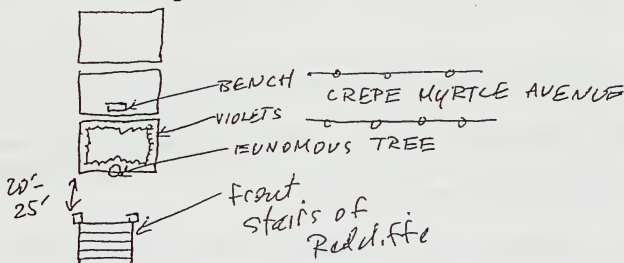 BENCH
CREPE MYRTLE AVENUE
VIOLETS
EUNOMOUS TREE
20'-
25'
front
stairs of
Redcliffe